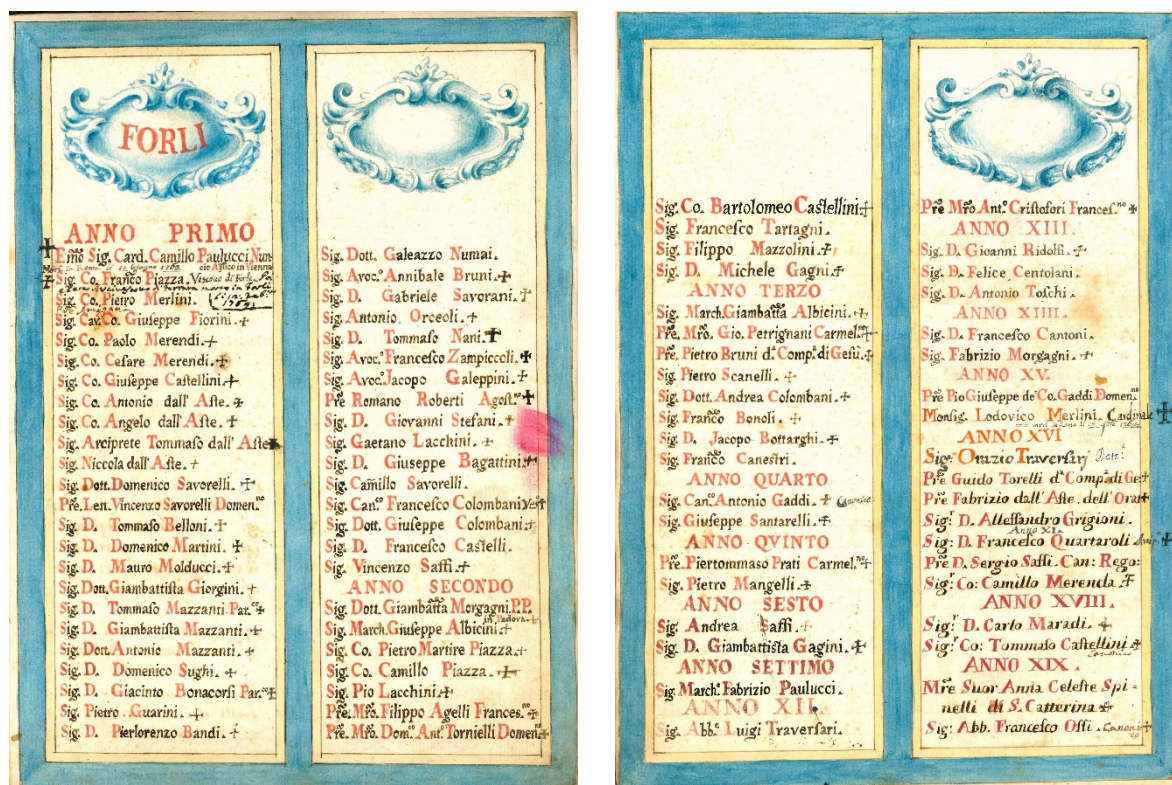 FORLI
ANNO PRIMO
✝ Emo Sig. Card. Camillo Paulucci Nun-
cio Aplico in Vienna
✝ Sig. Co. Franco Piazza. Vescovo di Forlì
Sig. Co. Pietro Merlini.
Sig. Cav. Co. Giuseppe Fiorini. ✝
Sig. Co. Paolo Merendi. ✝
Sig. Co. Cesare Merendi. ✝
Sig. Co. Giuseppe Castellini. ✝
Sig. Co. Antonio dall'Aste. ✝
Sig. Co. Angelo dall'Aste. ✝
Sig. Arciprete Tommaso dall'Aste ✝
Sig. Niccola dall'Aste. ✝
Sig. Dott. Domenico Savorelli. ✝
Pre. Let. Vincenzo Savorelli Domen.no
Sig. D. Tommaso Belloni. ✝
Sig. D. Domenico Martini. ✝
Sig. D. Mauro Molducci. ✝
Sig. Dott. Giambattista Giorgini. ✝
Sig. D. Tommaso Mazzanti Par.co ✝
Sig. D. Giambattista Mazzanti. ✝
Sig. Dott. Antonio Mazzanti. ✝
Sig. D. Domenico Sughi. ✝
Sig. D. Giacinto Bonacorsi Par.co ✝
Sig. Pietro Guarini. ✝
Sig. D. Pierlorenzo Bandi. ✝
Sig. Dott. Galeazzo Numai.
Sig. Avoc.o Annibale Bruni. ✝
Sig. D. Gabriele Savorani. ✝
Sig. Antonio Orceoli. ✝
Sig. D. Tommaso Nani. ✝
Sig. Avoc.o Francesco Zampiccoli. ✝
Sig. Avoc.o Jacopo Galeppini. ✝
Pre Romano Roberti Agost.no ✝
Sig. D. Giovanni Stefani. ✝
Sig. Gaetano Lacchini. ✝
Sig. D. Giuseppe Bagattini. ✝
Sig. Camillo Savorelli.
Sig. Can.co Francesco Colombani ✝
Sig. Dott. Giuseppe Colombani. ✝
Sig. D. Francesco Castelli.
Sig. Vincenzo Saffi. ✝
ANNO SECONDO
Sig. Dott. Giambatta Morgagni. P.P.
in Padova. ✝
Sig. March. Giuseppe Albicini. ✝
Sig. Co. Pietro Martire Piazza. ✝
Sig. Co. Camillo Piazza. ✝
Sig. Pio Lacchini. ✝
Pre. Mro. Filippo Agelli Frances.no ✝
Pre. Mro. Dom.co Ant.o Tornielli Domen.no ✝
Sig. Co. Bartolomeo Castellini. ✝
Sig. Francesco Tartagni. ✝
Sig. Filippo Mazzolini. ✝
Sig. D. Michele Gagni. ✝
ANNO TERZO
Sig. March. Giambatta Albicini. ✝
Pre. Mro. Gio. Petrignani Carmel.no ✝
Pre. Pietro Bruni d.a Comp.a di Gesù. ✝
Sig. Pietro Scanelli. ✝
Sig. Dott. Andrea Colombani. ✝
Sig. Franco Bonoli. ✝
Sig. D. Jacopo Bottarghi. ✝
Sig. Franco Canestri.
ANNO QUARTO
Sig. Can.co Antonio Gaddi. ✝ Canonico
Sig. Giuseppe Santarelli. ✝
ANNO QVINTO
Pre. Piertommaso Prati Carmel.no ✝
Sig. Pietro Mangelli. ✝
ANNO SESTO
Sig. Andrea Saffi. ✝
Sig. D. Giambattista Gagini. ✝
ANNO SETTIMO
Sig. March. Fabrizio Paulucci.
ANNO XII.
Sig. Abb.e Luigi Traversari.
Pre Mro Ant.o Cristofori Frances.no ✝
ANNO XIII.
Sig. D. Gioanni Ridolfi. ✝
Sig. D. Felice Centolani.
Sig. D. Antonio Toschi.
ANNO XIIII.
Sig. D. Francesco Cantoni.
Sig. Fabrizio Morgagni. ✝
ANNO XV.
Pre Pio Giuseppe de' Co. Gaddi Domen.no
Monsig. Lodovico Merlini. Cardinale ✝
ANNO XVI
Sig. Orazio Traversarj Dott.
Pre Guido Torelli d.a Comp.a di Ges ✝
Pre Fabrizio dall'Aste. dell'Orat ✝
Sig.r D. Allessandro Grigioni.
Anno XI.
Sig: D. Francesco Quartaroli ✝
Pre D. Sergio Sassi. Can: Rego:
Sig.r Co: Camillo Merenda. ✝
ANNO XVIII.
Sig.r D. Carlo Maradi. ✝
Sig.r Co: Tommaso Castellini ✝
Canonico
ANNO XIX.
Mre Suor Anna Celeste Spi-
nelli di S. Catterina ✝
Sig: Abb. Francesco Ossi. Canonico